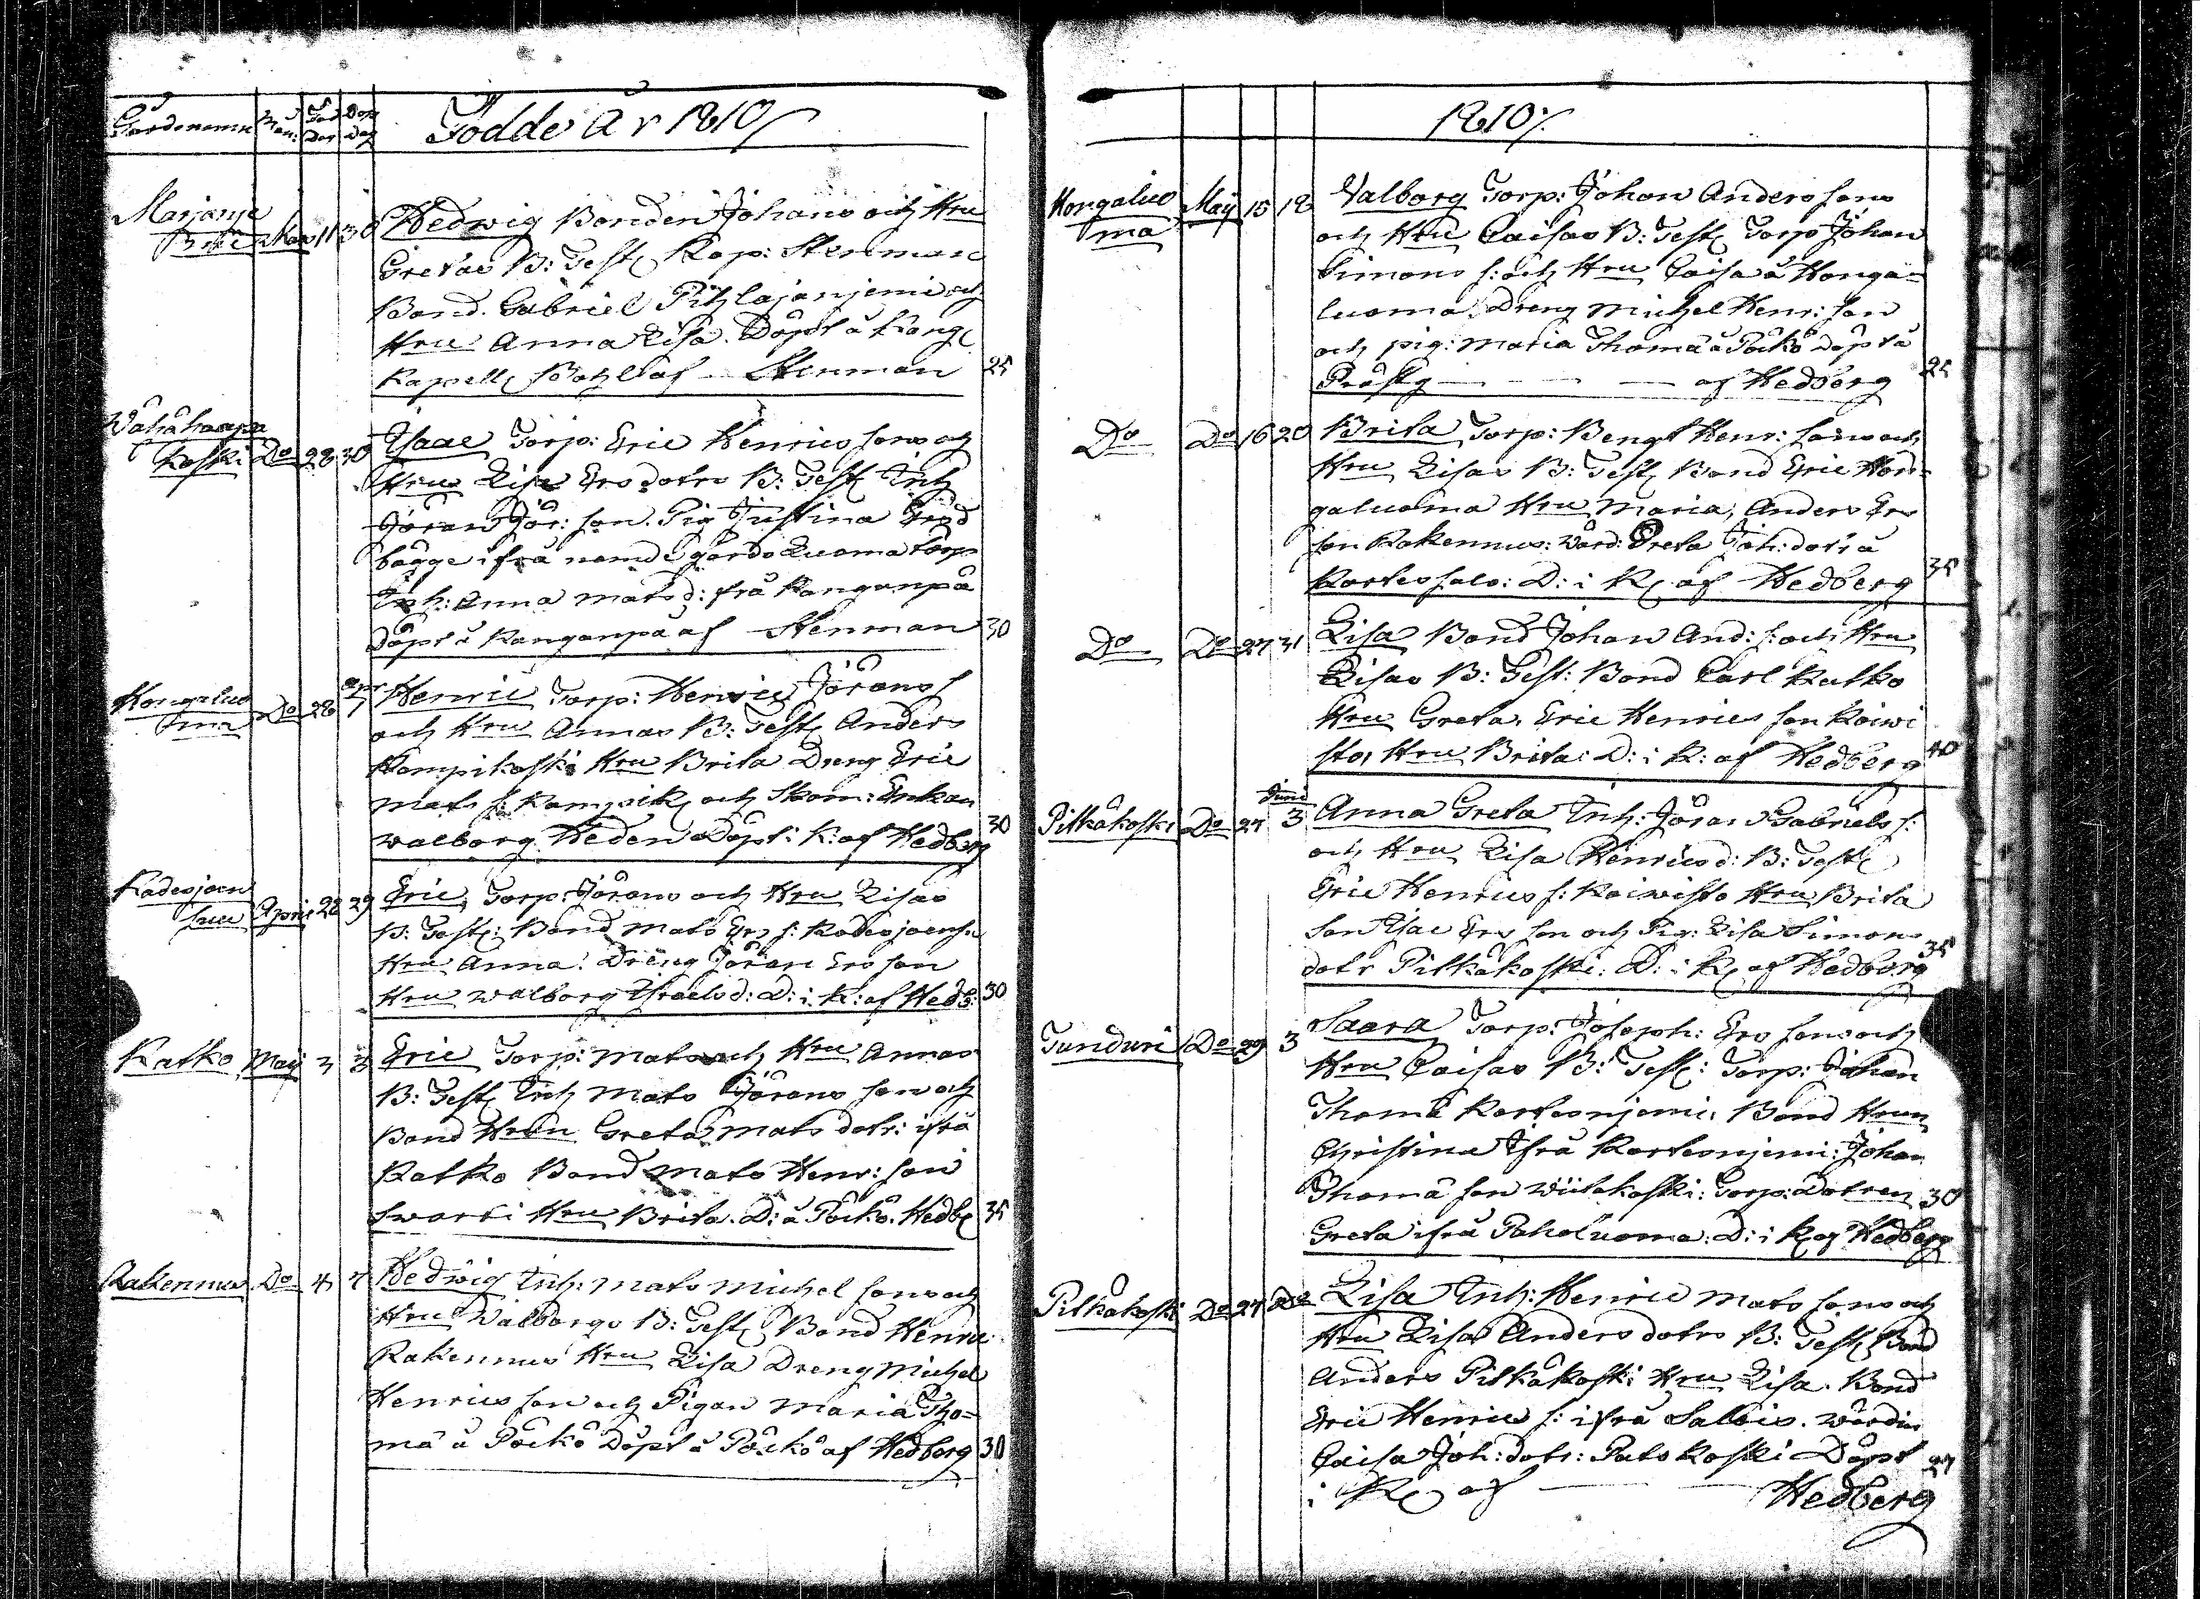 Gårdsnamn Mån: Föd Dag Döp Dag Födde År 1810
Marjanje
Mars 11 30 Hedwig Bonden Johans och Hru
Gretas B: Test Kap: Stenman
Bond. Gabriel Pitzlajanjemi och
Hru Anna Lisa. Döpt å Kang
Kapell af Stenman 25
Wähähaapa
koski Do 28 30 Isaac Torp: Eric Henrics sons och
Hru Lisa Ersdotrs B: Test Inh
Jöran Jör: son. Pig Justina
bägge ifrå nämde gård Luoma torp
Inh: Anna Mats d: frå Kanganpä
Döpt å Kanganpä af Stenman 30
Hongaluo
ma Do 28 apr 7 Henric Torp: Henric Jörans s
och Hru Annas B: Test Anders
Kampikoski Hru Brita Dreng Eric
Mats s: Kampik och Skom: Enkan
Walborg Heden Döpt i K: af Hedberg 30
Kådesjoen
suu April 28 29 Eric, Torp: Jörans och Hru Lisas
B: Test: Bond Mats Ers s: Kodesjoens
Hru Anna. Dreng Jöran Ers son
Hru Walborg Israels d: D: i K: af Hedb: 30
Katko Maij 3 3 Eric Torp: Mats och Hru Annas
B: Test Inh Mats Jörans son och
Bond Hrun Greta Mats dotr: ifrå
Katko Bond Mats Henr: son
Swarti Hru Brita. D: å Påckå. Hedb 35
Rakennus Do 4 7 Hedwig Inh: Mats Michel sons och
Hru Walborgs B: Test Bond Henric
Rakennus Hru Lisa Dreng Michel
Henrics son och Pigan Maria Tho=
mä å Påckå Döpt å Påckå af Hedberg 30
1810
Hongaluo
ma Maij 15 18 Valborg Torp: Johan Anders sons
och Hru Caisas B: Test Torp Johan
Simons s: och Hru Caisa å Honga=
luoma. Dreng Michel Henr: son
och pig: Maria Thomä å Påckå Döpt å
Påsky af Hedberg 25
Do Do 16 20 Brita Torp: Bengt Henr: sons och
Hru Lisas B: Test Bond Eric Hon=
galuoma Hru Maria, Anders Ers
son Rakennus: Wärd: Greta Joh: dotr å
Kortes salo: D: i K af Hedberg 35
Do Do 27 31 Lisa Bond Johan And: s: och Hru
Lisas B: Test: Bond Carl Katko
Hru Greta. Eric Henrics son Koiwi
sto, Hru Brita: D: i K: af Hedberg 40
Pitkäkoski Do 27 Juni 3 Anna Greta Inh: Jöran Gabriels s:
och Hru Lisa Henrics d: B: Test
Eric Henrics s: Koiwisto Hru Brita
son Isac Ers son och Pig: Lisa Simons
dotr Pitkäkoski. D: i K af Hedberg 35
Tunduri Do 29 3 Saara Torp: Joseph: Ers sons och
Hru Caisas B: Test: Torp: Johan
Thomä Kortesnjemi. Bond Hrun
Christina Ifrå Kortesnjemi: Johan
Thomä son Wiitakoski: Torp: Dotren
Greta ifrå Paholuoma: D: i K af Hedberg 30
Pitkäkoski Do 27 Do Lisa Inh: Henric Mats sons och
Hru Lisas Anders dotrs B: Test Bond
Anders Pitkäkoski Hru Lisa. Bond
Eric Henrics s: ifrå Salois. Wärdin
Caisa Joh: dotr: Patokoski Döpt 27
i K af Hedberg